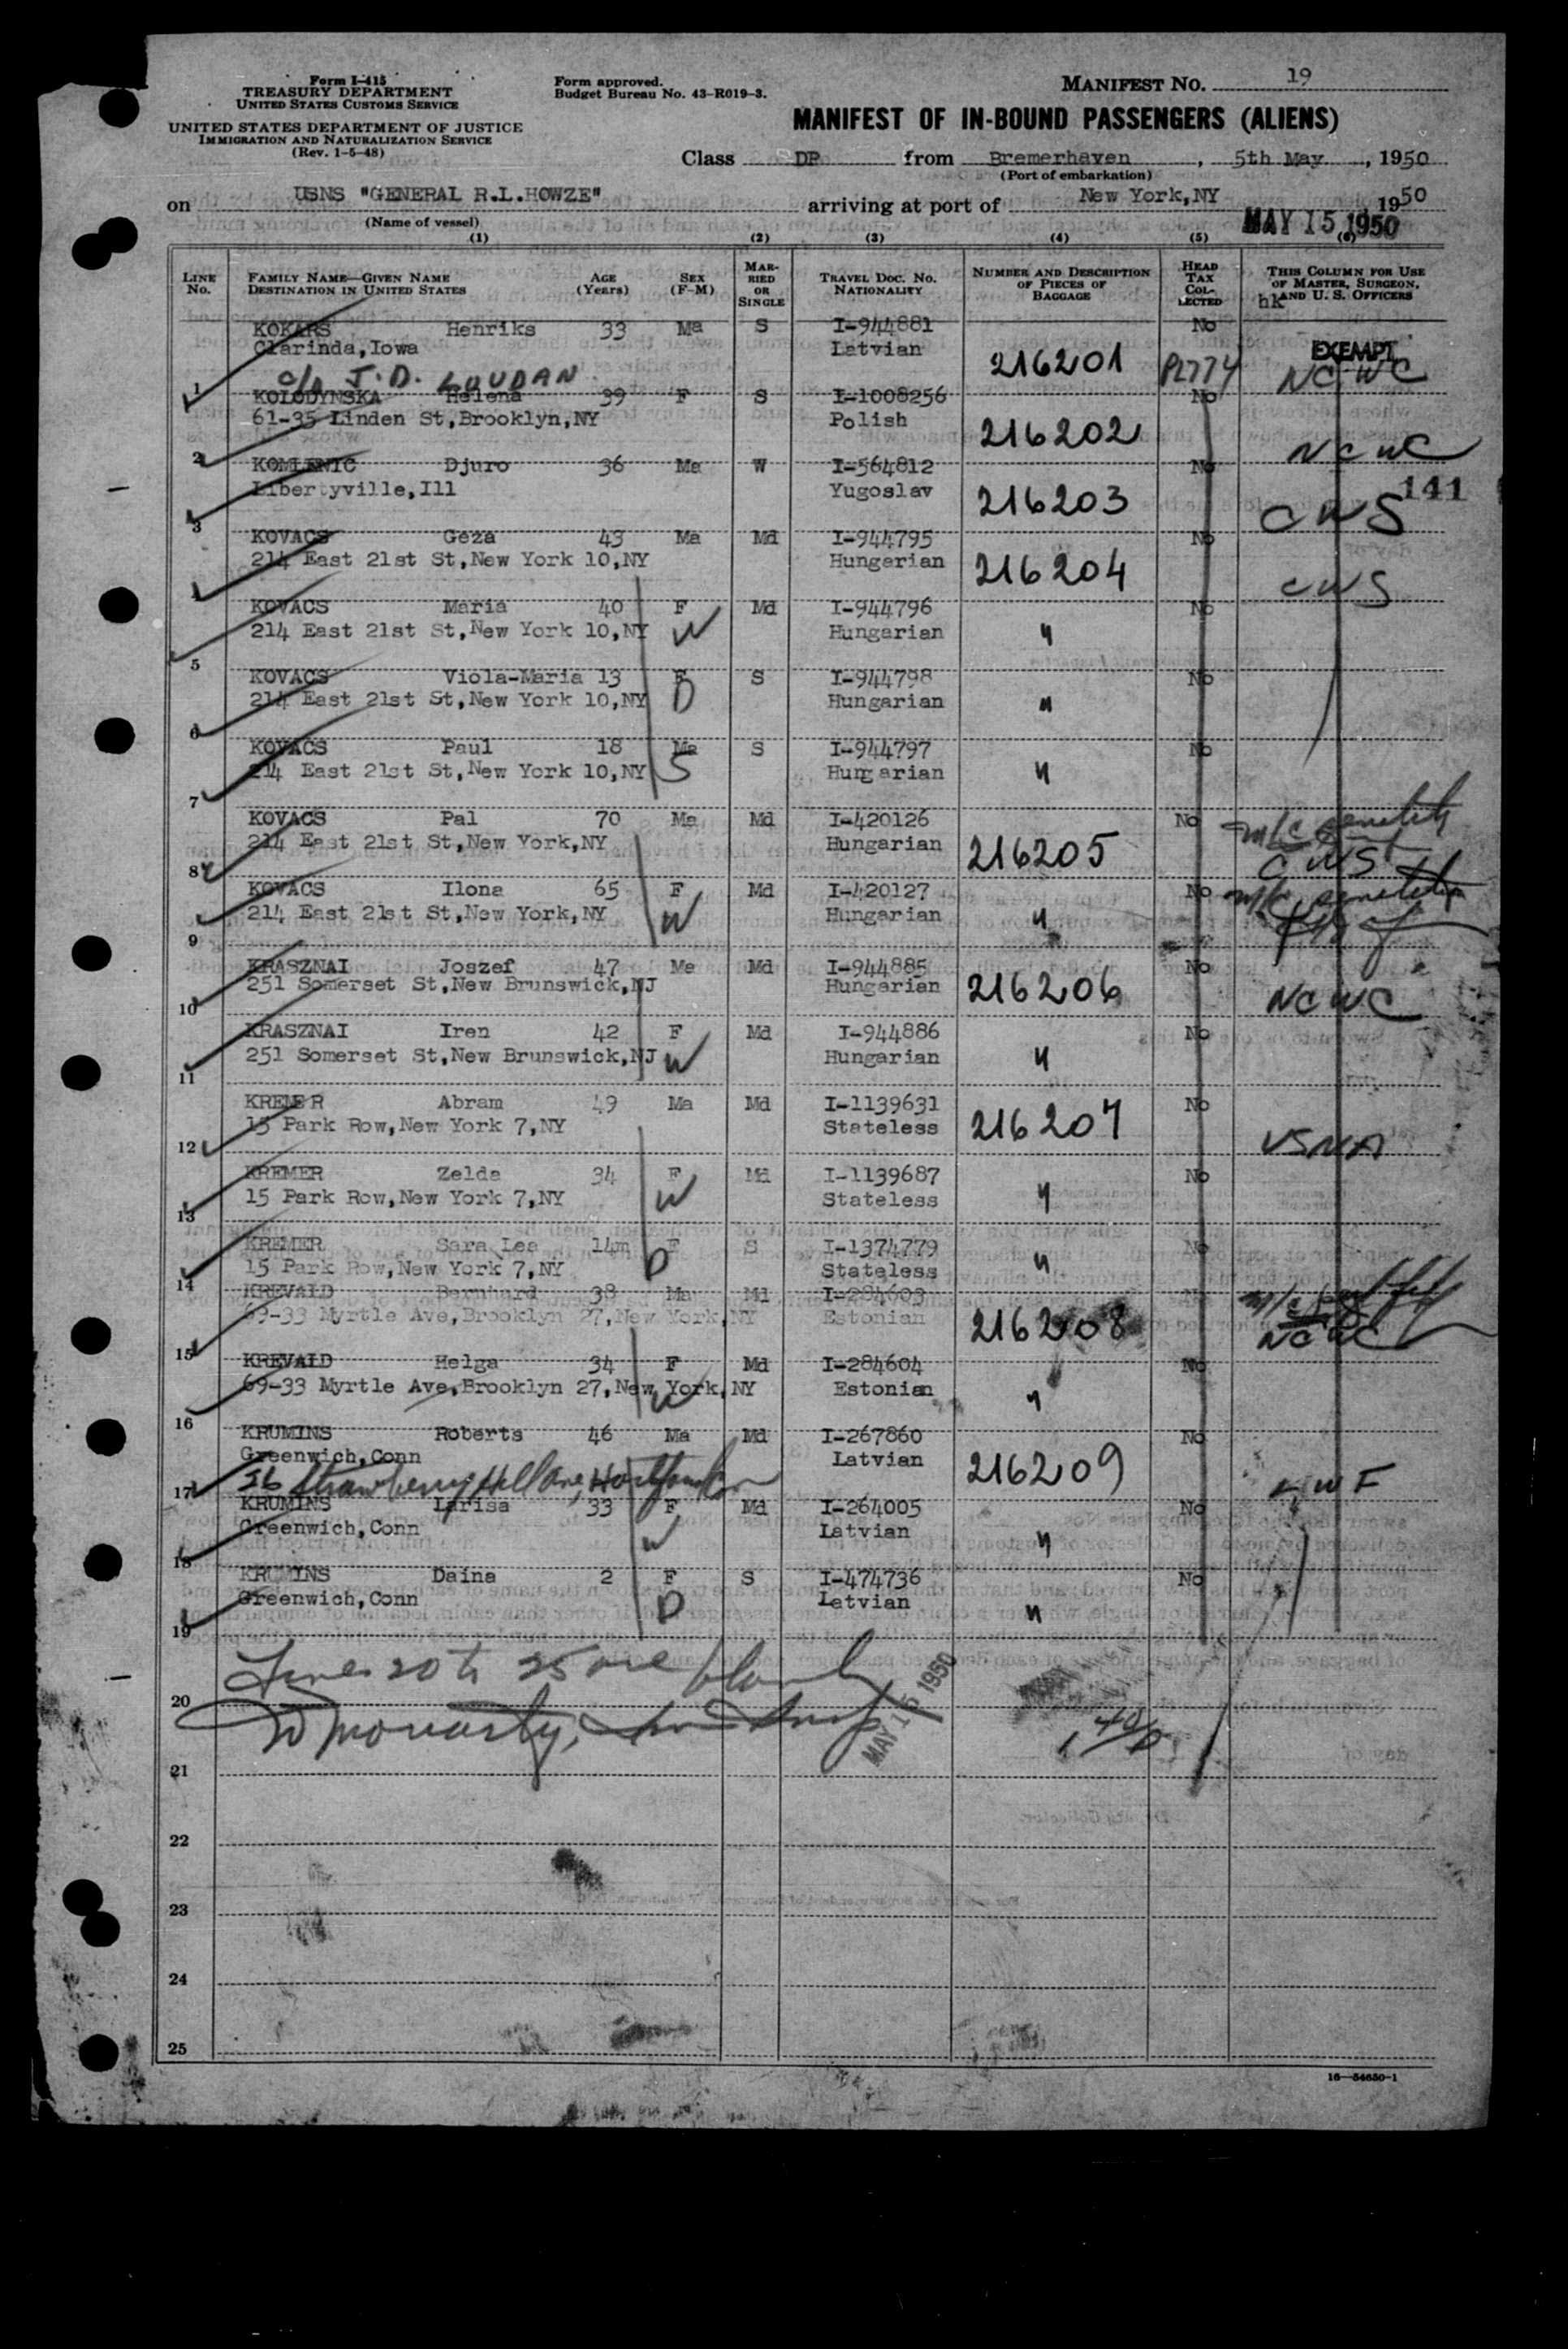 Form I-415
TREASURY DEPARTMENT
UNITED STATES CUSTOMS SERVICE
UNITED STATES DEPARTMENT OF JUSTICE
IMMIGRATION AND NATURALIZATION SERVICE
(Rev. 1-5-48)
Form approved.
Budget Bureau No. 43-R019-3.
MANIFEST NO. 19
MANIFEST OF IN-BOUND PASSENGERS (ALIENS)
Class DP from Bremerhaven, 5th May, 1950
(Port of embarkation)
on USNS "GENERAL R.L.HOWZE" arriving at port of New York,NY 1950
(Name of vessel)
MAY 15 1950
(1) (2) (3) (4) (5) (6)
LINE No. FAMILY NAME—GIVEN NAME DESTINATION IN UNITED STATES AGE (Years) SEX (F-M) MARRIED OR SINGLE TRAVEL DOC. NO. NATIONALITY NUMBER AND DESCRIPTION OF PIECES OF BAGGAGE HEAD TAX COLLECTED THIS COLUMN FOR USE OF MASTER, SURGEON, AND U. S. OFFICERS
hk
KOKARS Henriks 33 Ma S I-944881 No
Clarinda,Iowa Latvian 216201 PL774 EXEMPT NCWC
1 c/o J.D. LOUDAN
KOLODYNSKA Helena 39 F S I-1008256 No
61-35 Linden St,Brooklyn,NY Polish 216202 NCWC
2
KOMLENIC Djuro 36 Ma W I-564812 No
Libertyville,Ill Yugoslav 216203 CWS 141
3
KOVACS Geza 43 Ma Md I-944795 No
214 East 21st St,New York 10,NY Hungarian 216204 CWS
4
KOVACS Maria 40 F Md I-944796 No
214 East 21st St,New York 10,NY W Hungarian "
5
KOVACS Viola-Maria 13 F S I-944798 No
214 East 21st St,New York 10,NY D Hungarian "
6
KOVACS Paul 18 Ma S I-944797 No
214 East 21st St,New York 10,NY S Hungarian "
7
KOVACS Pal 70 Ma Md I-420126 No m/c senility
214 East 21st St,New York,NY Hungarian 216205 CWS
8
KOVACS Ilona 65 F Md I-420127 No m/c senility
214 East 21st St,New York,NY W Hungarian "
9
KRASZNAI Joszef 47 Ma Md I-944885 No
251 Somerset St,New Brunswick,NJ Hungarian 216206 NCWC
10
KRASZNAI Iren 42 F Md I-944886 No
251 Somerset St,New Brunswick,NJ W Hungarian "
11
KREMER Abram 49 Ma Md I-1139631 No
15 Park Row,New York 7,NY Stateless 216207 USNA
12
KREMER Zelda 34 F Md I-1139687 No
15 Park Row,New York 7,NY W Stateless "
13
KREMER Sara Lea 14m F S I-1374779 No
15 Park Row,New York 7,NY D Stateless "
14
KREVALD Bernhard 38 Ma Md I-284603
69-33 Myrtle Ave,Brooklyn 27,New York,NY Estonian 216208 NCWC
15
KREVALD Helga 34 F Md I-284604 No
69-33 Myrtle Ave,Brooklyn 27,New York,NY W Estonian "
16
KRUMINS Roberts 46 Ma Md I-267860 No
Greenwich,Conn Latvian 216209
17 36 Strawberry Hill Ave,
KRUMINS Larisa 33 F Md I-264005 No
Greenwich,Conn W Latvian "
18
KRUMINS Daina 2 F S I-474736 No
Greenwich,Conn D Latvian "
19
Lines 20 to 25 are blank
20 MAY 15 1950
21
22
23
24
25
16—54650-1